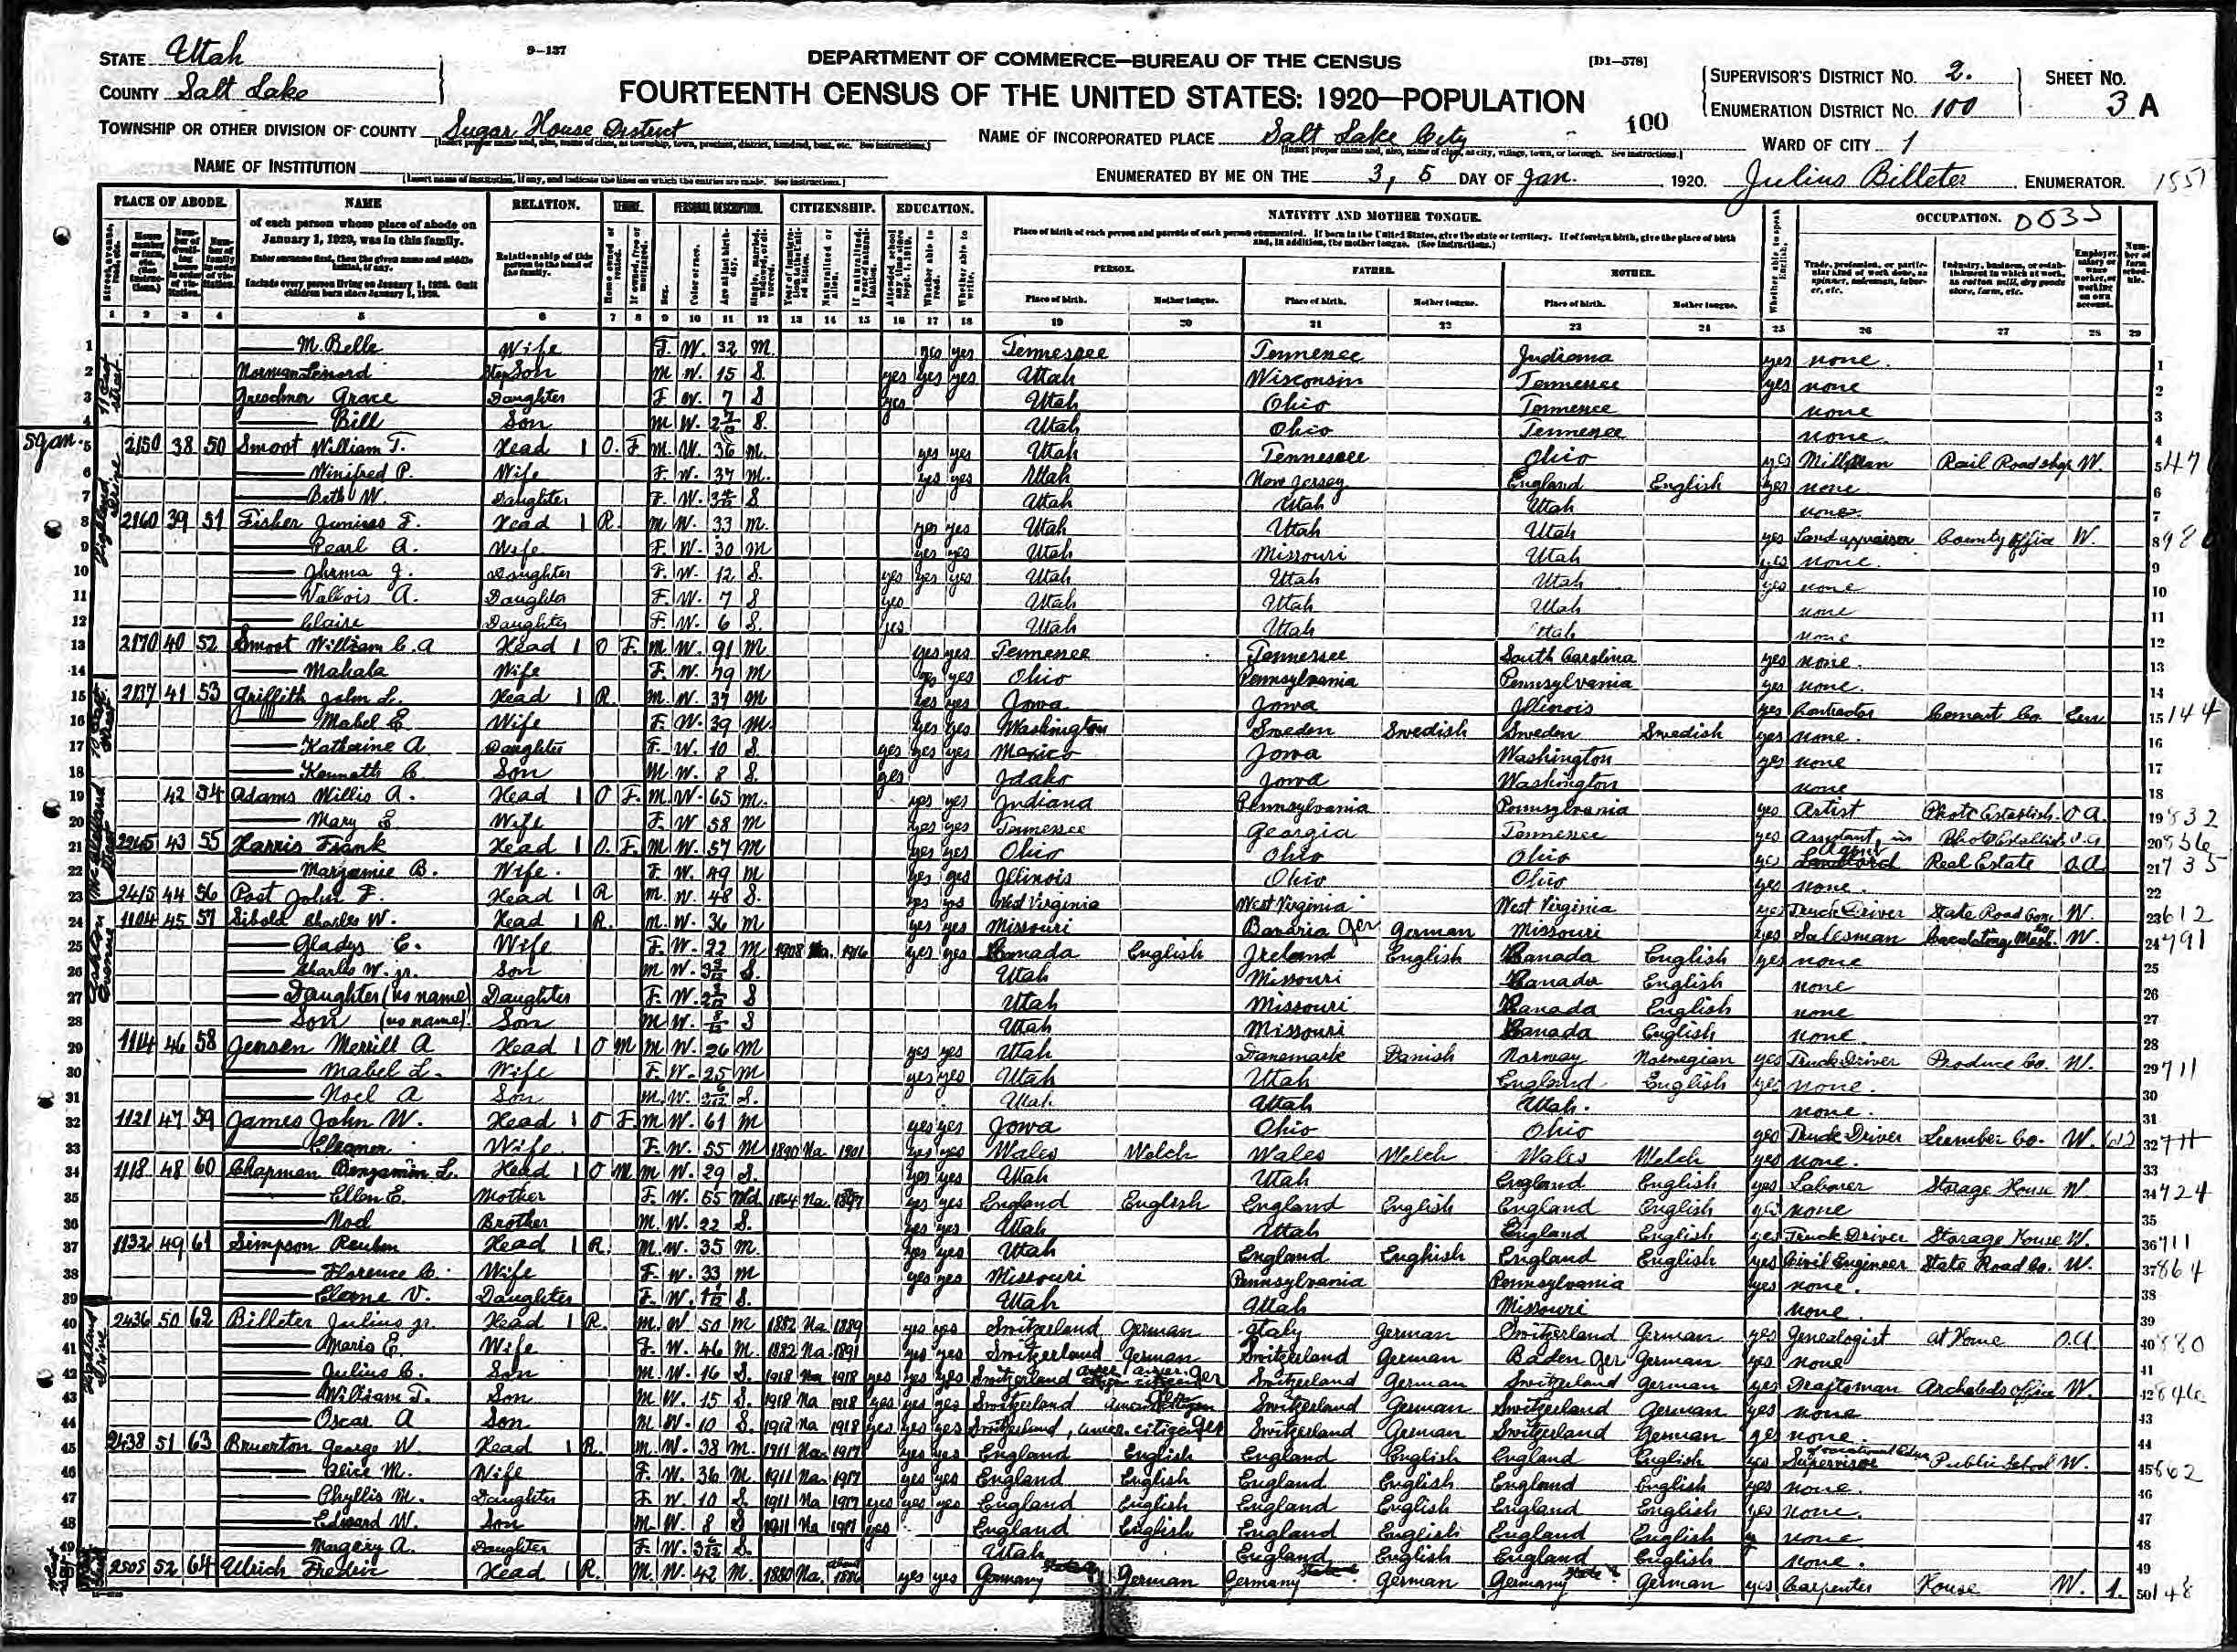 STATE Utah
9-137
DEPARTMENT OF COMMERCE—BUREAU OF THE CENSUS
[D1-578]
COUNTY Salt Lake
FOURTEENTH CENSUS OF THE UNITED STATES: 1920—POPULATION
SUPERVISOR'S DISTRICT No. 2.
SHEET No.
ENUMERATION DISTRICT No. 100
3 A
TOWNSHIP OR OTHER DIVISION OF COUNTY Sugar House District
NAME OF INCORPORATED PLACE Salt Lake City
100
WARD OF CITY 1
NAME OF INSTITUTION
ENUMERATED BY ME ON THE 3, 5 DAY OF Jan. 1920. Julius Billeter, ENUMERATOR.
PLACE OF ABODE. NAME RELATION. TENURE. PERSONAL DESCRIPTION. CITIZENSHIP. EDUCATION. NATIVITY AND MOTHER TONGUE. OCCUPATION.
of each person whose place of abode on January 1, 1920, was in this family.
Enter surname first, then the given name and middle initial, if any.
Include every person living on January 1, 1920. Omit children born since January 1, 1920.
Relationship of this person to the head of the family.
Place of birth of each person and parents of each person enumerated. If born in the United States, give the state or territory. If of foreign birth, give the place of birth and, in addition, the mother tongue. (See instructions.)
PERSON. FATHER. MOTHER.
Place of birth. Mother tongue. Place of birth. Mother tongue. Place of birth. Mother tongue.
1 2 3 4 5 6 7 8 9 10 11 12 13 14 15 16 17 18 19 20 21 22 23 24 25 26 27 28 29
1 M. Belle Wife F. W. 32 M. yes yes Tennessee Tennessee Indiana yes none.
2 Norman Lenord Step Son M W. 15 S. yes yes yes Utah Wisconsin Tennessee yes none
3 Grace Daughter F W. 7 S yes Utah Ohio Tennessee none
4 Bill Son M W. S. Utah Ohio Tennessee none.
5 Jan. 5 2150 38 50 Smoot William T. Head 1 O. F M. W. 36 M. yes yes Utah Tennessee Ohio yes Millman Rail Road shop W.
6 Winifred P. Wife F. W. 37 M. yes yes Utah New Jersey England English yes none
7 Beth W. Daughter F. W. S Utah Utah Utah none
8 2160 39 51 Fisher Junius F. Head 1 R. M W. 33 M. yes yes Utah Utah Utah yes Land appraiser County Office W.
9 Pearl A. Wife F. W. 30 M yes yes Utah Missouri Utah yes none.
10 J. Daughter F. W. 12 S. yes yes yes Utah Utah Utah yes none
11 A. Daughter F. W. 7 S yes Utah Utah Utah none
12 Claire Daughter F W. 6 S. yes Utah Utah Utah none
13 2170 40 52 Smoot William C. A Head 1 O F. M W. 91 M yes yes Tennessee Tennessee South Carolina yes none.
14 Mahala Wife F. W. 79 M yes yes Ohio Pennsylvania Pennsylvania yes none.
15 2137 41 53 Griffith John L. Head 1 R. M. W. 37 M yes yes Iowa Iowa Illinois yes Contractor Cement Co. Em
16 Mabel E. Wife F. W. 39 M. yes yes Washington Sweden Swedish Sweden Swedish yes none.
17 Katherine A. Daughter F. W. 10 S. yes yes yes Mexico Iowa Washington yes none
18 Kenneth C. Son M W. 8 S. yes Idaho Iowa Washington none
19 42 54 Adams Willis A. Head 1 O F. M. W. 65 M. yes yes Indiana Pennsylvania Pennsylvania yes Artist Photo Establish. O A.
20 Mary E. Wife F. W 58 M yes yes Tennessee Georgia Tennessee yes Assistant in Photo Establish O A
21 2265 43 55 Harris Frank Head 1 O. F. M W. 57 M yes yes Ohio Ohio Ohio yes Agent Real Estate O A
22 Marjamie B. Wife. F. W. 49 M yes yes Illinois Ohio Ohio yes none.
23 2415 44 56 Post John F. Head 1 R M. W. 48 S. yes yes West Virginia West Virginia West Virginia yes Truck Driver State Road Com. W.
24 1104 45 57 Sibold Charles W. Head 1 R. M. W. 36 M yes yes Missouri Bavaria Ger German Missouri yes Salesman Calculating Mach. W.
25 Gladys E. Wife F. W. 22 M 1908 Na. 1916 yes yes Canada English Ireland English Canada English yes none
26 Charles W. jr. Son M W. S. Utah Missouri Canada English none
27 Daughter (no name) Daughter F. W. S Utah Missouri Canada English none
28 Son (no name). Son M W. S Utah Missouri Canada English none.
29 1114 46 58 Jensen Merrill A Head 1 O M M W. 26 M yes yes Utah Danemark Danish Norway Norwegian yes Truck Driver Produce Co. W.
30 Mabel L. Wife F. W. 25 M yes yes Utah Utah England English yes none.
31 Noel A Son M. W. S. Utah Utah Utah. none.
32 1121 47 59 James John W. Head 1 O F. M W. 61 M yes yes Iowa Ohio Ohio yes Truck Driver Lumber Co. W.
33 Eleanor Wife F. W. 55 M 1890 Na 1901 yes yes Wales Welch Wales Welch Wales Welch yes none.
34 1118 48 60 Chapman Benjamin L. Head 1 O M M W. 29 S. yes yes Utah Utah England English yes Laborer Storage House W.
35 Ellen E. Mother F. W. 55 Wd. 1864 Na. yes yes England English England English England English yes none
36 Nod Brother M. W. 22 S. yes yes Utah Utah England English yes Truck Driver Storage House W.
37 1132 49 61 Simpson Reuben Head 1 R. M. W. 35 M. yes yes Utah England Enghish England English yes Civil Engineer State Road Co. W.
38 Florence C. Wife F. W. 33 M yes yes Missouri Pennsylvania Pennsylvania yes none.
39 V. Daughter F. W. S. Utah Utah Missouri none
40 2436 50 62 Billeter Julius jr. Head 1 R. M. W 50 M 1882 Na 1889 yes yes Switzerland German Italy German Switzerland German yes Genealogist at Home O.A.
41 Maria E. Wife F. W. 46 M. 1882 Na. 1891 yes yes Switzerland German Switzerland German Baden Ger German yes none
42 Julius C. Son M. W. 16 S. 1918 Na 1918 yes yes yes Switzerland Ger Switzerland German Switzerland German yes Draftsman Architects Office W.
43 William T. Son M W. 15 S. 1918 Na 1918 yes yes yes Switzerland Switzerland German Switzerland German yes none
44 Oscar A Son M W. 10 S. 1918 Na 1918 yes yes yes Switzerland, amer. citizen Ger Switzerland German Switzerland German yes none.
45 2438 51 63 Bruerton George W. Head 1 R. M. W. 38 M. 1911 Na. 1917 yes yes England English England English England English yes Supervisor of vocational Educ Public School W.
46 Alice M. Wife F. W. 36 M 1911 Na. 1917 yes yes England English England English England English yes none.
47 Phyllis M. Daughter F. W. 10 S. 1911 Na 1917 yes yes yes England English England English England English yes none.
48 Edward W. Son M. W. 8 S 1911 Na 1917 yes England English England English England English none
49 Margery A. Daughter F. W. S. Utah England English England English none.
50 2505 52 64 Ulrich Head 1 R. M. W. 42 M. 1880 Na. about 1886 yes yes Germany German Germany German Germany German yes Carpenter House W. 1.